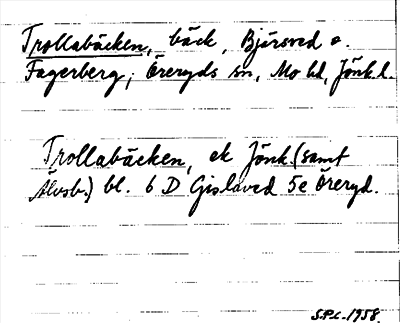 Trollabäcken, bäck, Bjärsved o.
Fagerberg, Öreryds sn, Mo hd, Jönk.l.
Trollabäcken, ek Jönk.(samt
Älvsb.) bl. 6 D Gislaved 5e Öreryd.
S.P.L. 1958.